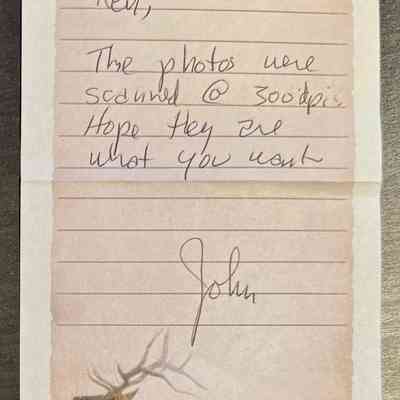 The photos were
scanned @ 300 dpi.
Hope they are
what you want
John